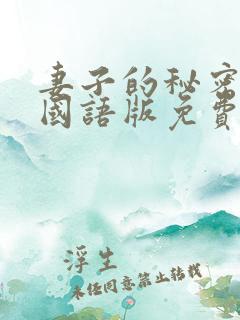 妻子的秘密
國語版免費
浮生
未經同意禁止轉載